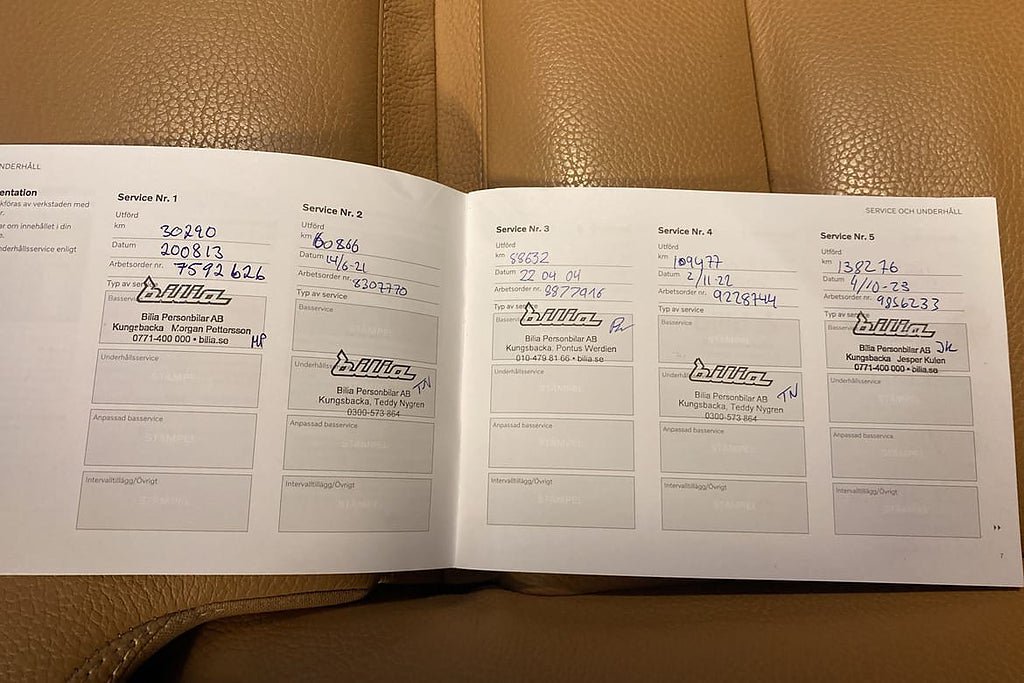 UNDERHÅLL
entation
kföras av verkstaden med
r.
ar om innehållet i din
e.
nderhållsservice enligt
Service Nr. 1
Utförd
km 30290
Datum 200813
Arbetsorder nr. 7592626
Typ av service
Basservice
bilia
Bilia Personbilar AB
Kungsbacka Morgan Pettersson
0771-400 000 • bilia.se MP
Underhållsservice
STÄMPEL
Anpassad basservice
STÄMPEL
Intervalltillägg/Övrigt
STÄMPEL
Service Nr. 2
Utförd
km 60866
Datum 14/6-21
Arbetsorder nr. 8307770
Typ av service
Basservice
STÄMPEL
Underhållsservice
bilia
Bilia Personbilar AB TN
Kungsbacka, Teddy Nygren
0300-573 864
Anpassad basservice
STÄMPEL
Intervalltillägg/Övrigt
STÄMPEL
SERVICE OCH UNDERHÅLL
Service Nr. 3
Utförd
km 88632
Datum 22 04 04
Arbetsorder nr. 8877916
Typ av service
Basservice
bilia
Bilia Personbilar AB
Kungsbacka, Pontus Werdien
010-479 81 66 • bilia.se
Underhållsservice
STÄMPEL
Anpassad basservice
STÄMPEL
Intervalltillägg/Övrigt
STÄMPEL
Service Nr. 4
Utförd
km 109477
Datum 2/11-22
Arbetsorder nr. 9228744
Typ av service
Basservice
STÄMPEL
Underhållsservice
bilia
Bilia Personbilar AB TN
Kungsbacka, Teddy Nygren
0300-573 864
Anpassad basservice
STÄMPEL
Intervalltillägg/Övrigt
STÄMPEL
Service Nr. 5
Utförd
km 138276
Datum 4/10-23
Arbetsorder nr. 9856233
Typ av service
Basservice
bilia
Bilia Personbilar AB JK
Kungsbacka Jesper Kulen
0771-400 000 • bilia.se
Underhållsservice
STÄMPEL
Anpassad basservice
STÄMPEL
Intervalltillägg/Övrigt
STÄMPEL
7